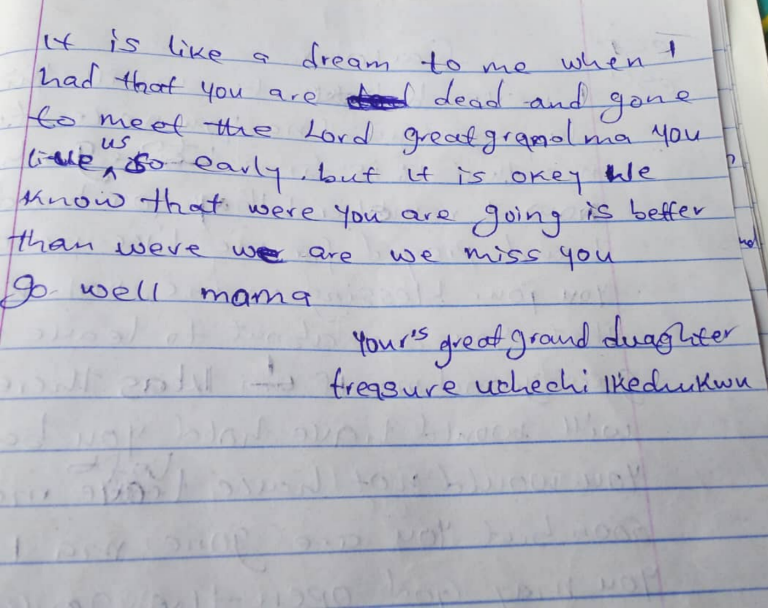 It is like a dream to me when I
had that you are dead and gone
to meet the Lord great grand ma you
live us so early. but it is okey We
know that were you are going is better
than were we are we miss you
go well mama
Your's great grand duaghter
treasure uchechi Ikechukwu